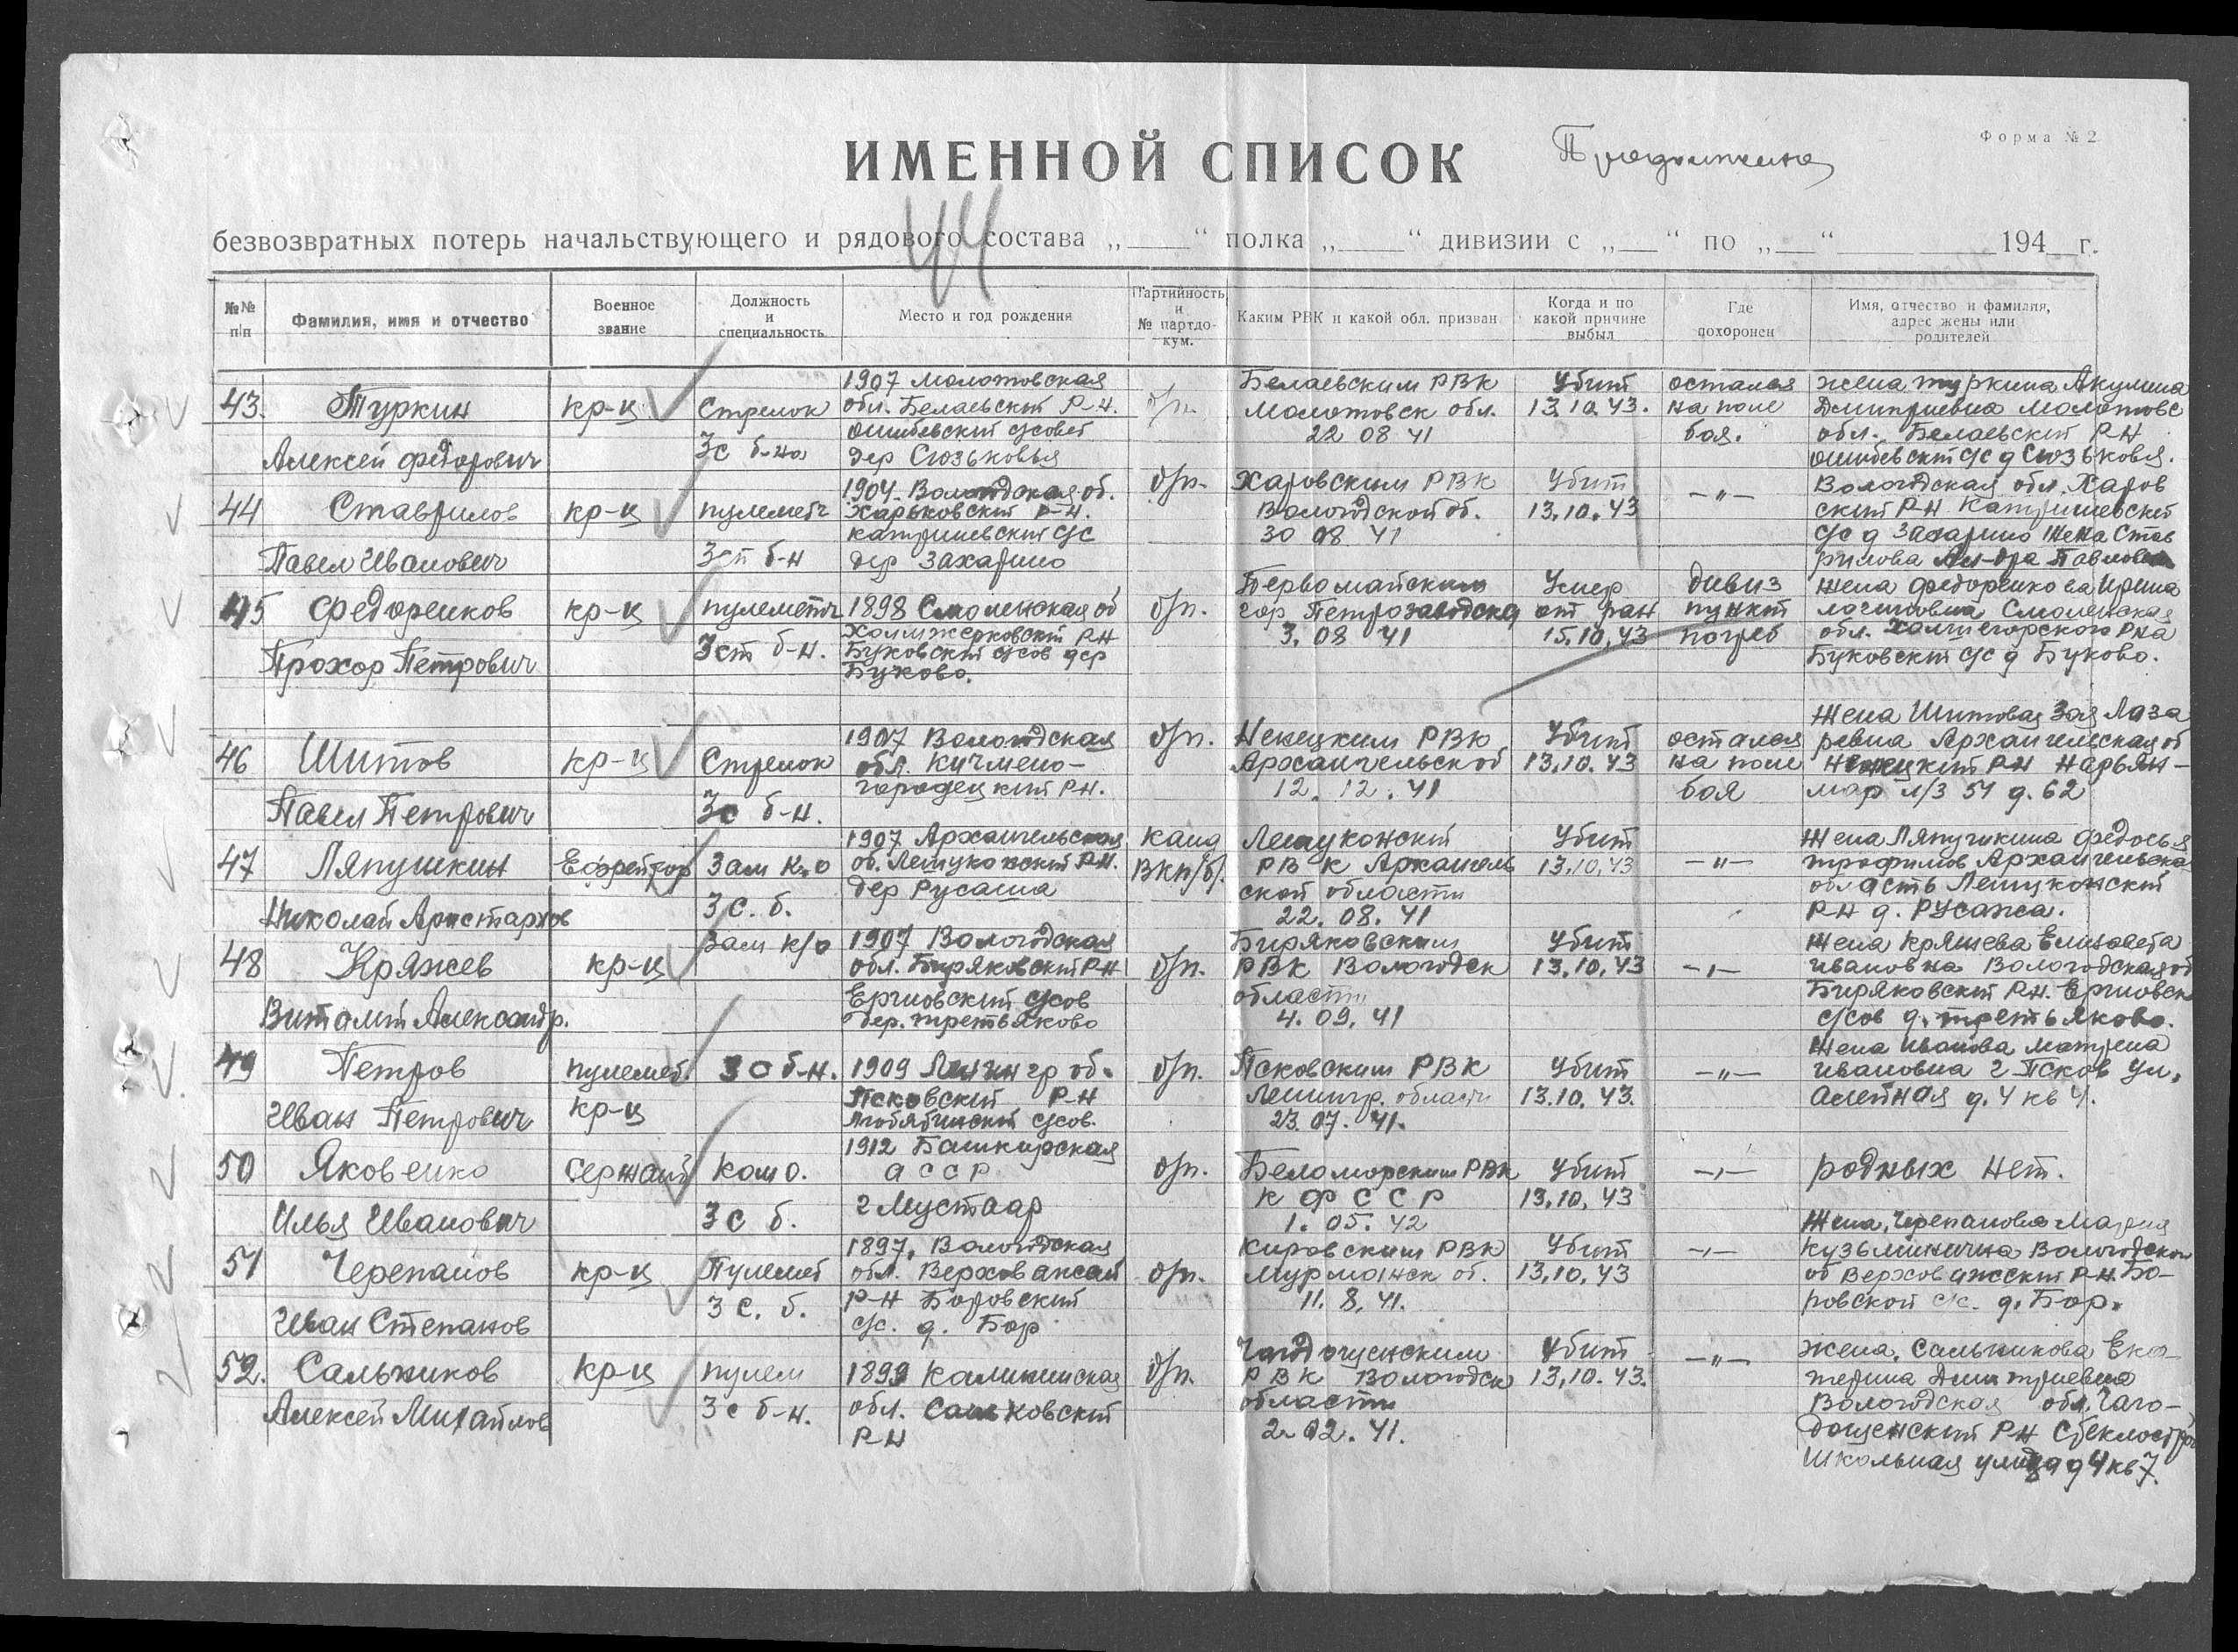 Форма № 2
ИМЕННОЙ СПИСОК
44
безвозвратных потерь начальствующего и рядового состава „ “ полка „ “ дивизии с „ “ по „ “ 194 г.
№№ п/п
Фамилия, имя и отчество
Военное звание
Должность и специальность
Место и год рождения
Партийность и № партдокум.
Каким РВК и какой обл. призван
Когда и по какой причине выбыл
Где похоронен
Имя, отчество и фамилия, адрес жены или родителей
43. Туркин
Алексей Федорович
кр-ц
Стрелок
3с б-на
1907 Молотовская
обл. Белаевский р-н.
ошибевский с/совет
дер Сюзьковья
б/п.
Белаевским РВК
Молотовск обл.
22 08 41
Убит
13.10.43.
остался
на поле
боя.
жена туркина Акулина
Дмитриевна Молотовс
обл. Белаевский РН
ошибевский с/с д Сюзьковья.
44 Ставрилов
Павел Иванович
кр-ц
пулеметч
3ст б-н
1904. Вологодская об.
Харьковский р-н.
катришевский с/с
дер Захарино
б/п.
Харовским РВК
Вологодской об.
30 08 41
Убит
13.10.43
—"—
Вологодская обл. Харов
ский РН Катришевский
с/с д Захарино Жена Став
рилова Павловна
45 Федоренков
Прохор Петрович
кр-ц
пулеметч
3ст б-н.
1898 Смоленская об
Холмжерковский РН
Буковский с/сов дер
Буково.
б/п.
Первомайским
гор Петрозаводска
3. 08 41
Умер
от ран
15.10.43
дивиз
пункт
погреб
жена федоренкова Ирина
логиновна Смоленская
обл. Р-на
Буковский с/с д Буково.
46 Шитов
Павел Петрович
кр-ц
Стрелок
3с б-н.
1907 Вологодская
обл. Кичмено-
городецкий РН.
б/п.
Ненецким РВК
Архангельск об
12. 12. 41
Убит
13.10.43
остался
на поле
боя
Жена Шитовая Зоя Лаза
ревна Архангельская об
Ненецкий РН Нарьян-
мар л/з 51 д. 62
47 Ляпушкин
Николай Аристархов
Ефрейтор
Зам к-о
3 с. б.
1907 Архангельская
об. Лешуконский РН.
дер Русаша
канд
ВКП/б/.
Лешуконский
РВК Архангель
ской области
22. 08. 41
Убит
13.10.43
—"—
Жена Ляпушкина Федосья
трофимов Архангельска
область Лешуконский
РН д. Русанса.
48 Кряжев
Виталий Александр.
кр-ц
Зам к/о
1907 Вологодская
обл. Биряковский РН
Ергиовский с/сов
дер. третьяково
б/п.
Биряковским
РВК Вологодск
области
4. 09. 41
Убит
13.10.43
—"—
Жена Кряжева Елизовета
ивановна Вологодская об
Биряковский РН. Ергиовск
с/сов д. третьяково.
49 Петров
Иван Петрович
пулемет.
кр-ц
3 с б-н.
1909 Ленингр об.
Псковский Р-Н
с/сов.
б/п.
Псковским РВК
Ленингр. области
23. 07. 41.
Убит
13.10.43.
—"—
Жена иванова матрена
ивановна г Псков ул.
алейная д. 4 кв 4.
50 Яковенко
Илья Иванович
Сержант
Ком о.
3 с б.
1912 Башкирская
АССР
г Мустаар
б/п.
Беломорским РВК
К Ф С С Р
1. 05. 42
Убит
13.10.43
—"—
родных нет.
51 Черепанов
Иван Степанов
кр-ц
Пулемет
3 с. б.
1897. Вологодская
обл. Верховажский
Р-Н Боровский
с/с. д. Бор
б/п.
Кировским РВК
Мурманск об.
11. 8. 41.
Убит
13.10.43
—"—
Жена, Черепанова Мария
Кузьминична Вологодской
об Верховажский РН. Бо-
ровской с/с. д. Бор.
52. Сальников
Алексей Михайлов
кр-ц
пулем
3с б-н.
1899 Калининская
обл. Сандковский
РН
б/п.
Чагодощенским
РВК Вологодск
области
2. 02. 41.
Убит
13.10.43.
—"—
жена. Сальникова Ека-
терина Дмитриевна
Вологодская обл. Чаго-
дощенский РН
Школьная улица д 4 кв 7.